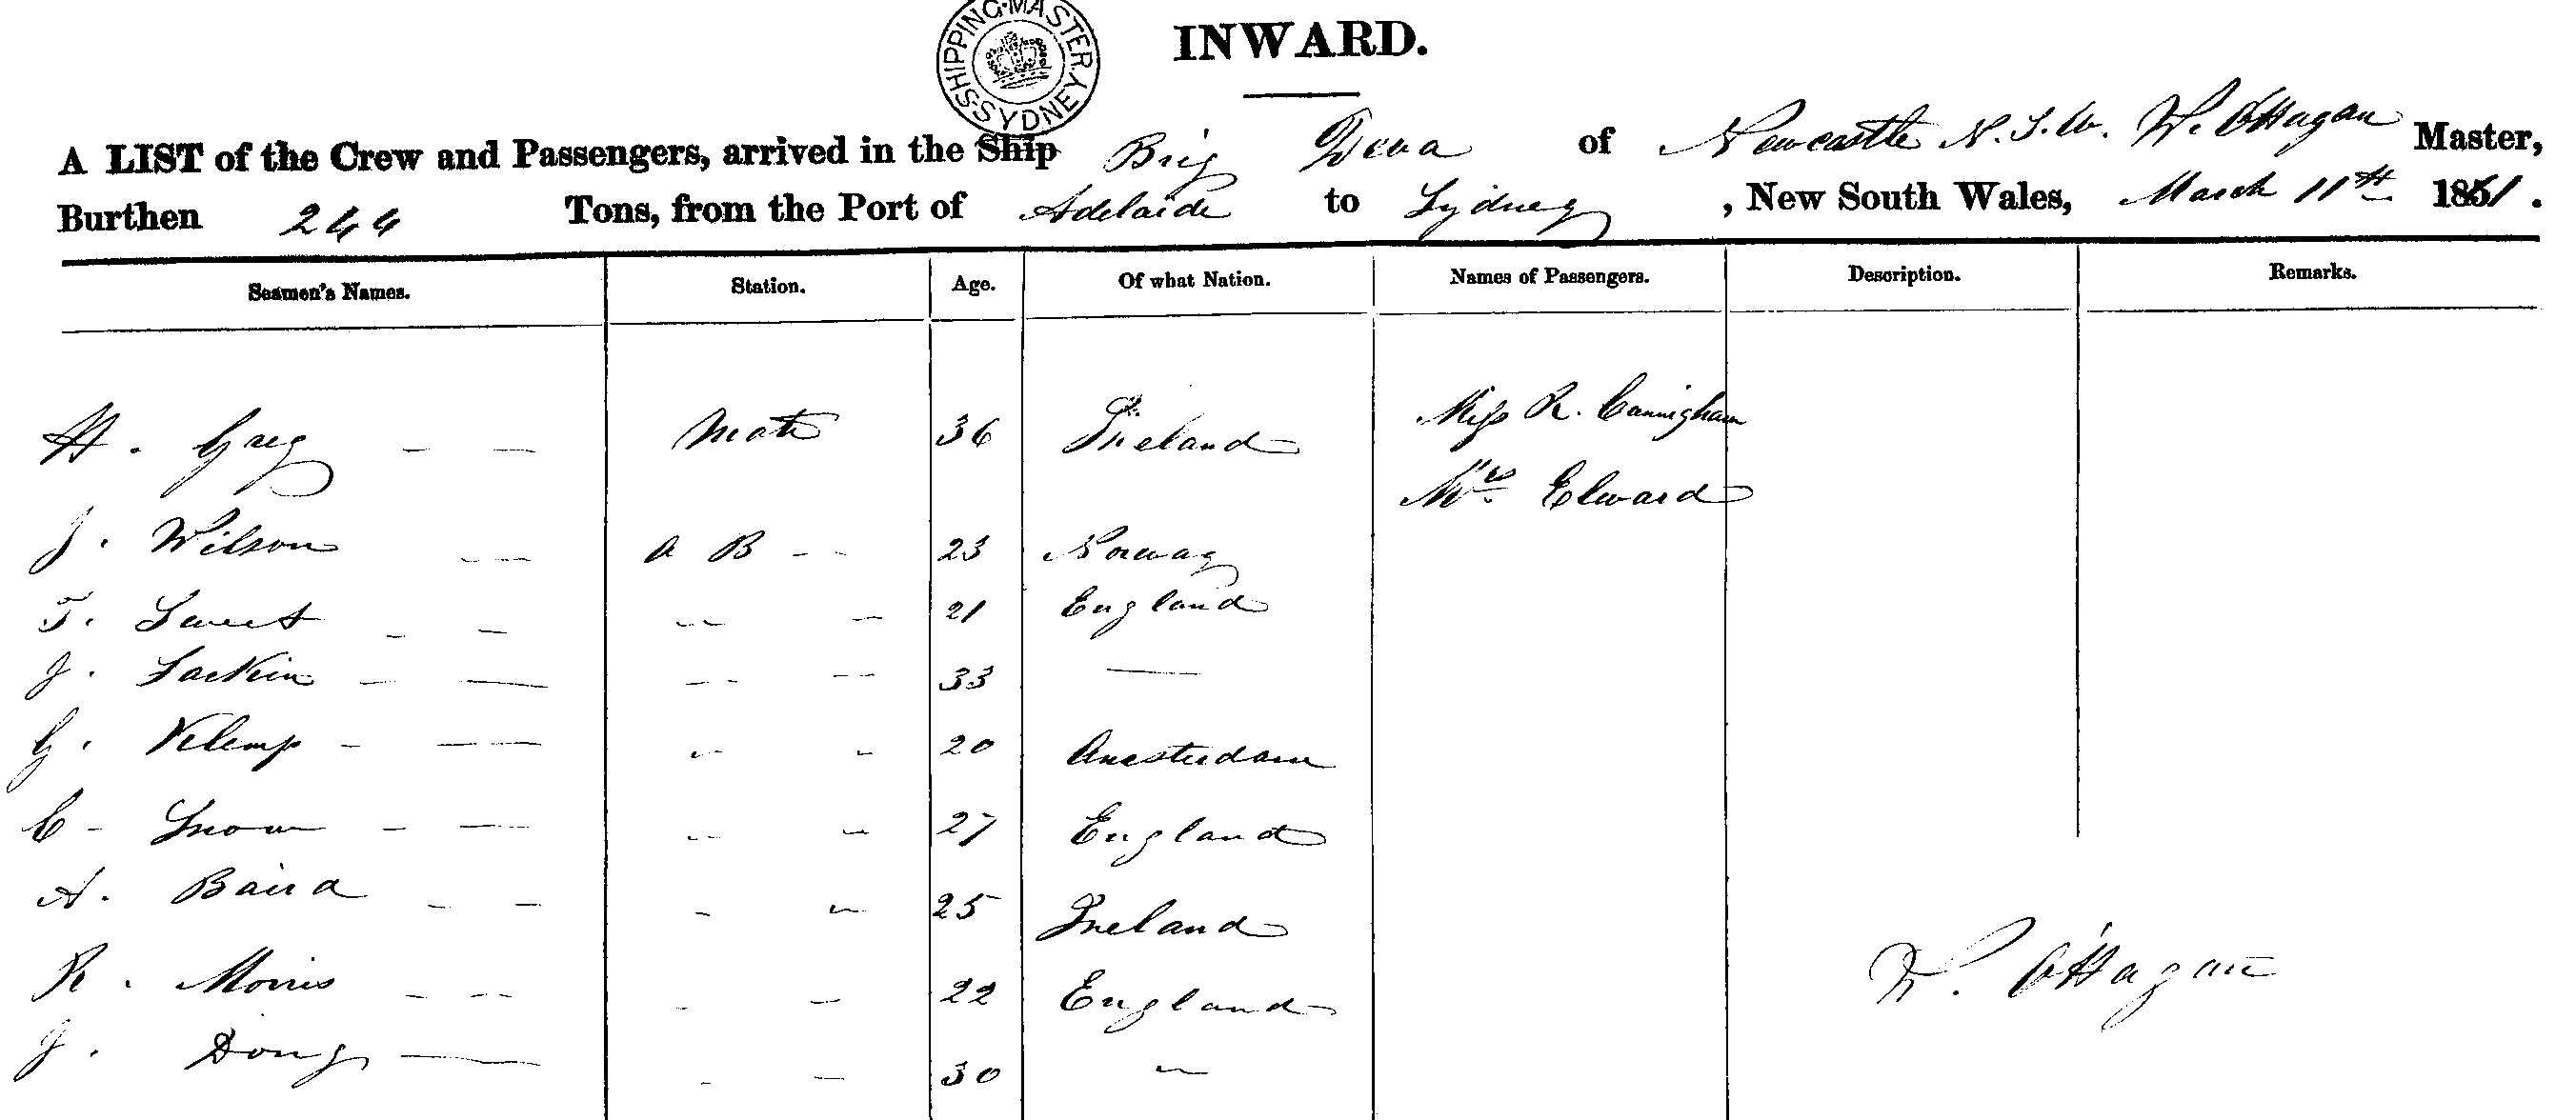 SHIPPING·MASTER·SYDNEY·
INWARD.
A LIST of the Crew and Passengers, arrived in the Ship Brig Deva of Newcastle N.S.W. W. O'Hagan Master,
Burthen 244 Tons, from the Port of Adelaide to Sydney, New South Wales, March 11th 1861.
Seamen's Names. Station. Age. Of what Nation. Names of Passengers. Description. Remarks.
H. Grey - - Mate 36 Ireland Miss R. Cannigham
Mrs Elward
J. Wilson - - A B - - 23 Norway
T. - - - - 21 England
J. Larkin - - - - 33 -
G. Klemp - - - - 20 Amsterdam
C - Snow - - - - 27 England
A. Baird - - - - 25 Ireland
R. Morris - - - - 22 England
W. O'Hagan
J. - - - 30 -